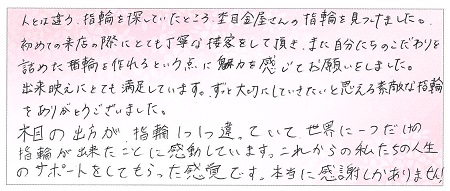 人とは違う、指輪を探していたところ、杢目金屋さんの指輪を見つけました。
初めての来店の際にとても丁寧な接客をして頂き、また自分たちのこだわりを
詰めた指輪を作れるという点に魅力を感じてお願いをしました。
出来映えにとても満足しています。ずっと大切にしていきたいと思える素敵な指輪
をありがとうございました。
木目の出方が、指輪1つ1つ違っていて、世界に一つだけの
指輪が出来たことに感動しています。これからの私たちの人生
のサポートをしてもらった感覚です。本当に感謝しかありません!